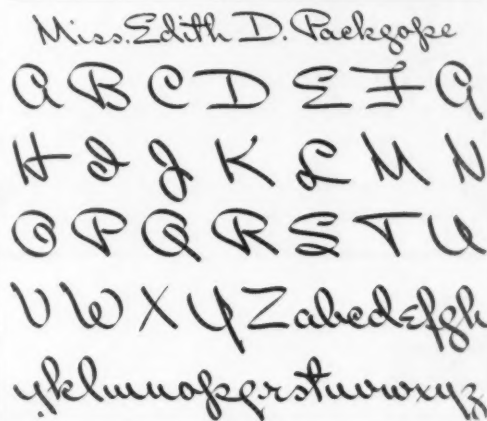 Miss. Edith D. Packgope
A B C D E F G
H I J K L M N
O P Q R S T U
V W X Y Z a b c d e f g h
i j k l m n o p q r s t u v w x y z